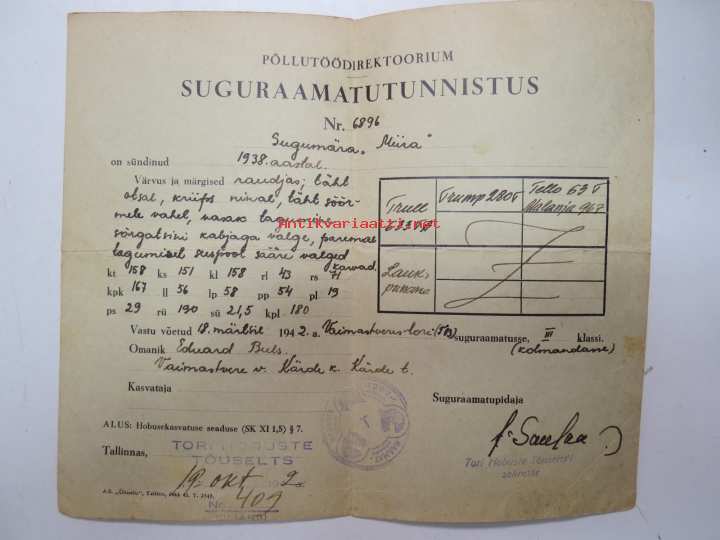 PÕLLUTÖÖDIREKTOORIUM
SUGURAAMATUTUNNISTUS
Nr. 6896
Sugumära „Miira"
on sündinud 1938. aastal.
Värvus ja märgised raudjas; täht
otsal, kriips ninal, täht sõõr-
mete vahel, vasak tagumine
sõrgatsini kabjaga valge, paremal
tagumisel seespool sääri valged
karvad.
Trull
Trump 280 T
Tello 63 T
Melanja 967
Lauk-
punane
Antikvariaatti.net
kt 158 ks 151 kl 158 rl 43 rs 71
kpk 167 ll 56 lp 58 pp 54 pl 19
ps 29 rü 190 sü 21,5 kpl 180
Vastu võetud 18. märtsil 1942. a. Vaimastvere tori suguraamatusse, III klassi.
(kolmandasse)
Omanik Eduard Buls.
Vaimastvere v. Kärde k. Kärde t.
Kasvataja
Suguraamatupidaja
ALUS: Hobusekasvatuse seaduse (SK XI 1,5) § 7.
Tallinnas,
TORI HOBUSTE
TÕUSELTS
19. okt 1942
No. 409
Tori Hobuste Tõuseltsi
sekretär